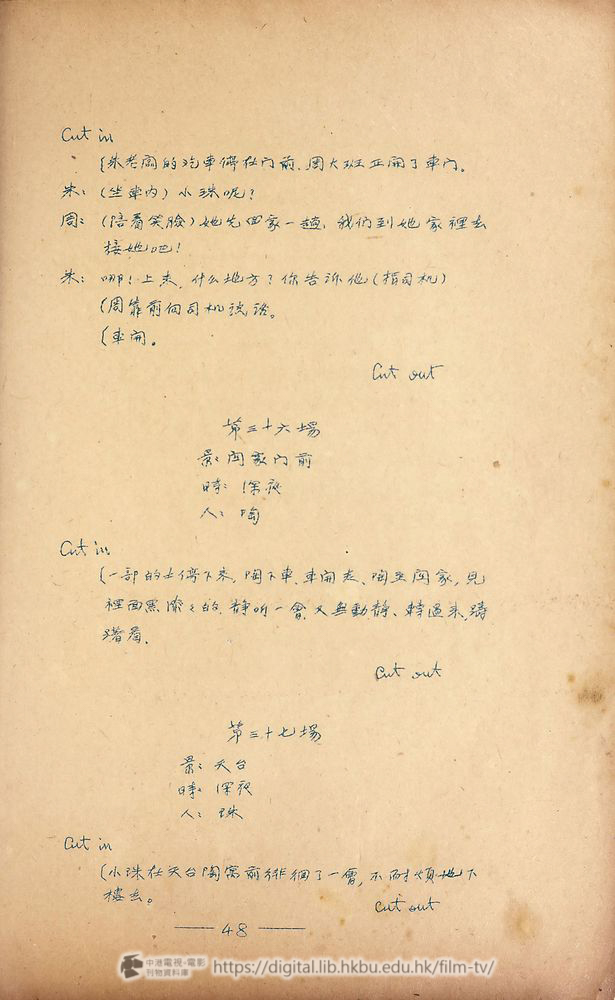 Cut in
(朱老闆的汽車停在門前、周大班正開了車門。
朱：(坐車內) 小珠呢？
周：(陪着笑臉) 她先回家一趟, 我們到她家裡去
接她吧！
朱：哪！上去, 什么地方？你告訴他 (指司机)
(周靠前向司机談談。
(車開。
Cut out
第三十六場
景：家門前
時：深夜
人：陶
Cut in
(一部的士停下來, 陶下車、車開走、陶至家, 見
裡面黑漆々的, 靜听一會, 又無動靜、轉過來, 躊
躇着.
Cut out
第三十七場
景：天台
時：深夜
人：珠
Cut in
(小珠在天台陶寓前徘徊了一會, 不耐煩地下
樓去。
Cut out
48
中港電視・電影
刊物資料庫
https://digital.lib.hkbu.edu.hk/film-tv/